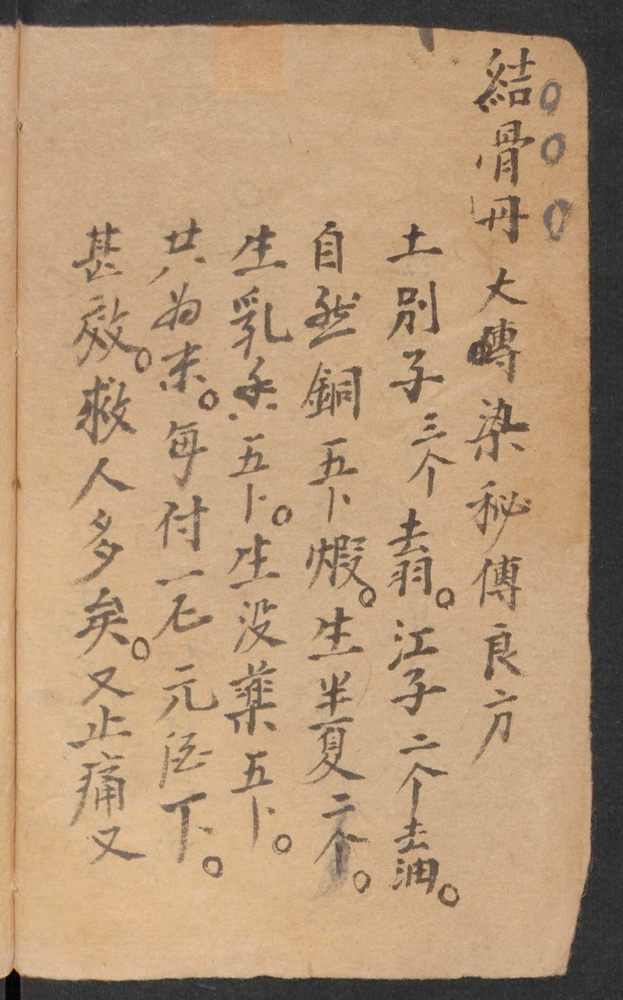 結骨丹 大嘑染秘傳良方
土別子三个去翁。江子二个去油。
自然銅五卜煆。生半夏二个。
生乳香五卜。生没藥五卜。
共为末。每付一屯元酒下。
甚效。救人多矣。又止痛又